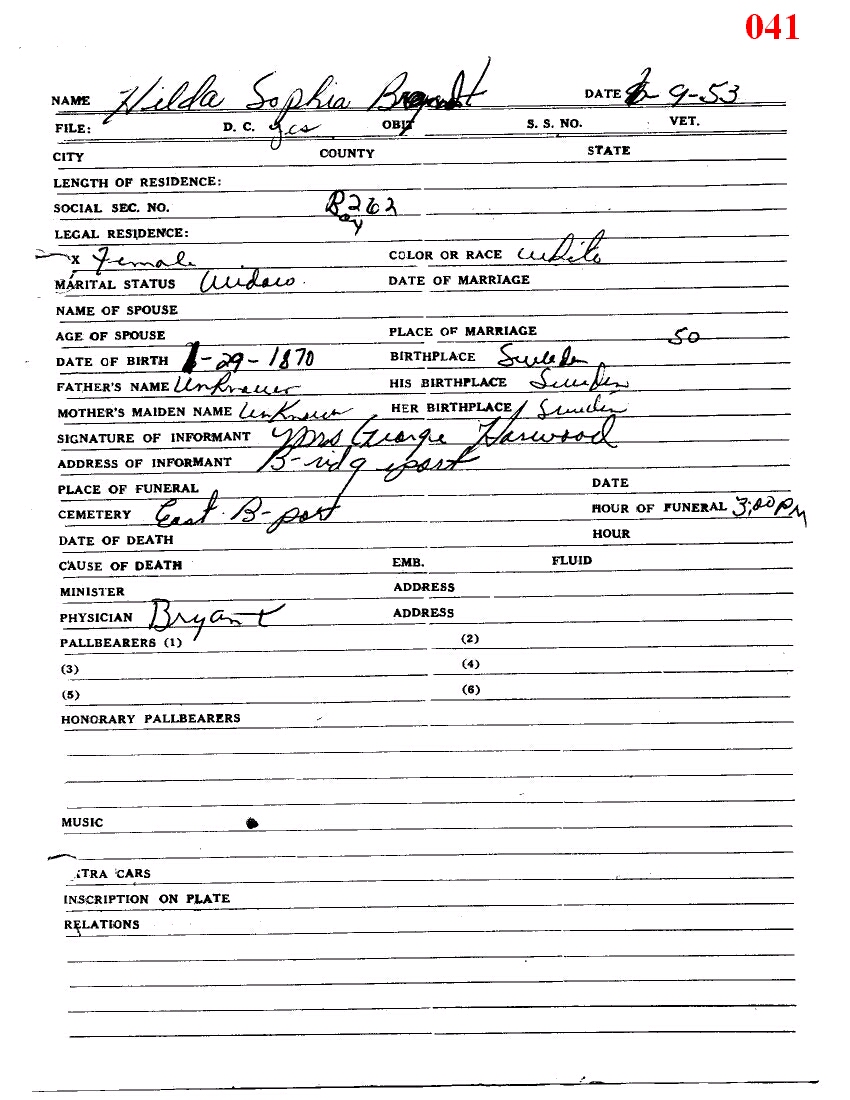 041
NAME Hilda Sophia DATE 9-53
FILE: D. C. yes OBIT S. S. NO. VET.
CITY COUNTY STATE
LENGTH OF RESIDENCE:
SOCIAL SEC. NO. B262
LEGAL RESIDENCE:
X Female COLOR OR RACE White
MARITAL STATUS Widow DATE OF MARRIAGE
NAME OF SPOUSE
AGE OF SPOUSE PLACE OF MARRIAGE 50
DATE OF BIRTH -29-1870 BIRTHPLACE Sweden
FATHER'S NAME Unknown HIS BIRTHPLACE Sweden
MOTHER'S MAIDEN NAME Unknown HER BIRTHPLACE Sweden
SIGNATURE OF INFORMANT Mrs George Harwood
ADDRESS OF INFORMANT B-ridgeport
PLACE OF FUNERAL DATE
CEMETERY East B-port HOUR OF FUNERAL 3:00 PM
DATE OF DEATH HOUR
CAUSE OF DEATH EMB. FLUID
MINISTER ADDRESS
PHYSICIAN Bryant ADDRESS
PALLBEARERS (1) (2)
(3) (4)
(5) (6)
HONORARY PALLBEARERS
MUSIC
TRA CARS
INSCRIPTION ON PLATE
RELATIONS